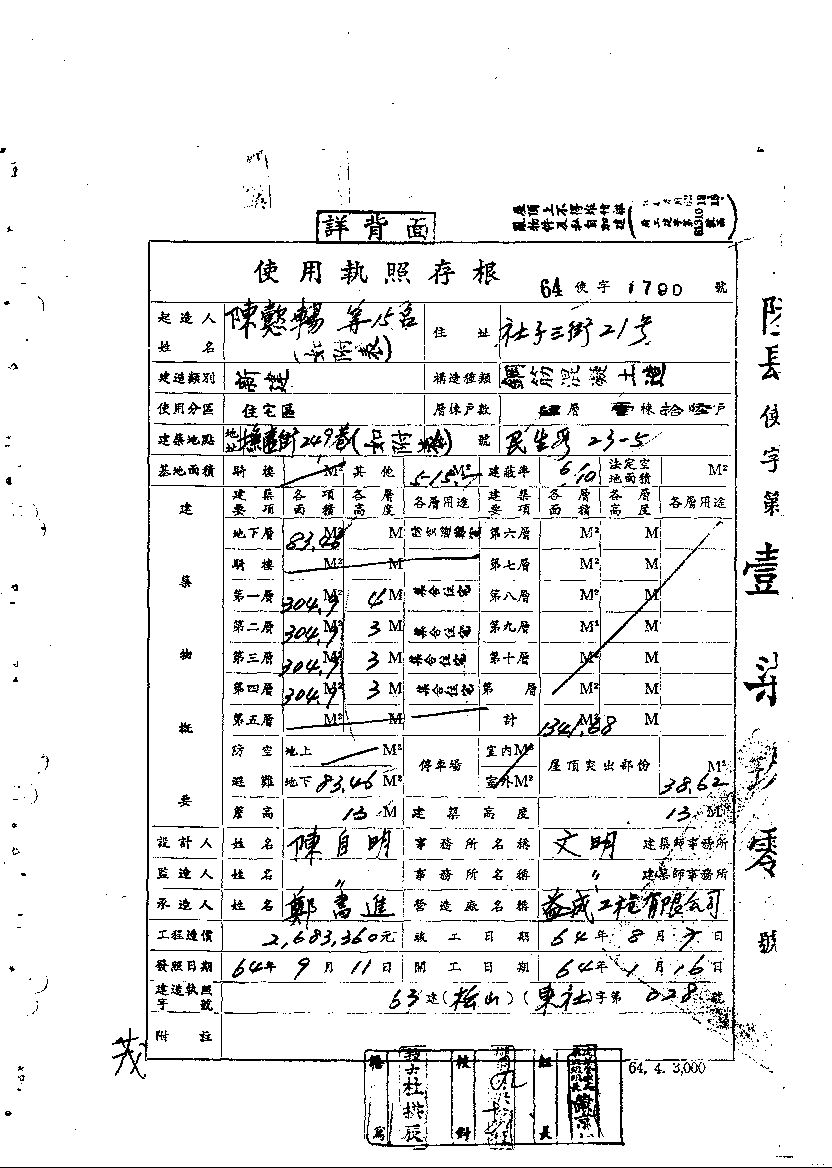 詳背面
使用執照存根
64 使字 1790 號
起造人姓名 陳懿暢 等15名 住址 社子三街21号
建造類別 新建 構造種類 鋼筋混凝土造
使用分區 住宅區 層棟戶數 層 壹棟拾 戶
建築地點 地址 撫遠街249巷 號 民生 23-5
基地面積 騎樓 M² 其他 515. M² 建蔽率 6/10 法定空地面積 M²
建築物概要
建築要項 各項面積 各層高度 各層用途 建築要項 各層面積 各層高度 各層用途
地下層 83.46 M² M 第六層 M² M
騎樓 M² M 第七層 M² M
第一層 304.9 M² 4 M 集合住宅 第八層 M² M
第二層 304.9 M² 3 M 集合住宅 第九層 M² M
第三層 304.9 M² 3 M 集合住宅 第十層 M² M
第四層 304.9 M² 3 M 集合住宅 第 層 M² M
第五層 M² M 計 1341.68 M² M
防空避難 地上 M² 停車場 室內M² 屋頂突出部份 38.62 M²
地下 83.46 M² 室外M²
簷高 13 M 建築高度 13 M
設計人 姓名 陳自明 事務所名稱 文明 建築師事務所
監造人 姓名 〃 事務所名稱 〃 建築師事務所
承造人 姓名 鄭 進 營造廠名稱 益成工程有限公司
工程造價 2,683,360元 竣工日期 64年8月7日
發照日期 64年9月11日 開工日期 64年1月16日
建造執照字號 63建(松山)(東社)字第028號
附註
64. 4. 3,000
繕寫 校對 組長
使字第壹柒 零號